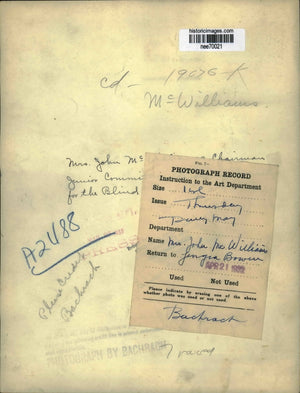 historicimages.com
nee70021
cd - 19676-K
McWilliams
Mrs. John Mc Chairman
Junior Commi
for the Blind
A2488
Please Credit
Bachrach
PHOTOGRAPH BY BACHRACH
PHOTOGRAPH RECORD
Instruction to the Art Department
Size 1 col
Issue Thursday
Department
Name Mrs. John McWilliams
Return to Bower
APR 21 1932
Used Not Used
Please indicate by erasing one of the above
whether photo was used or not used.
Bachrach